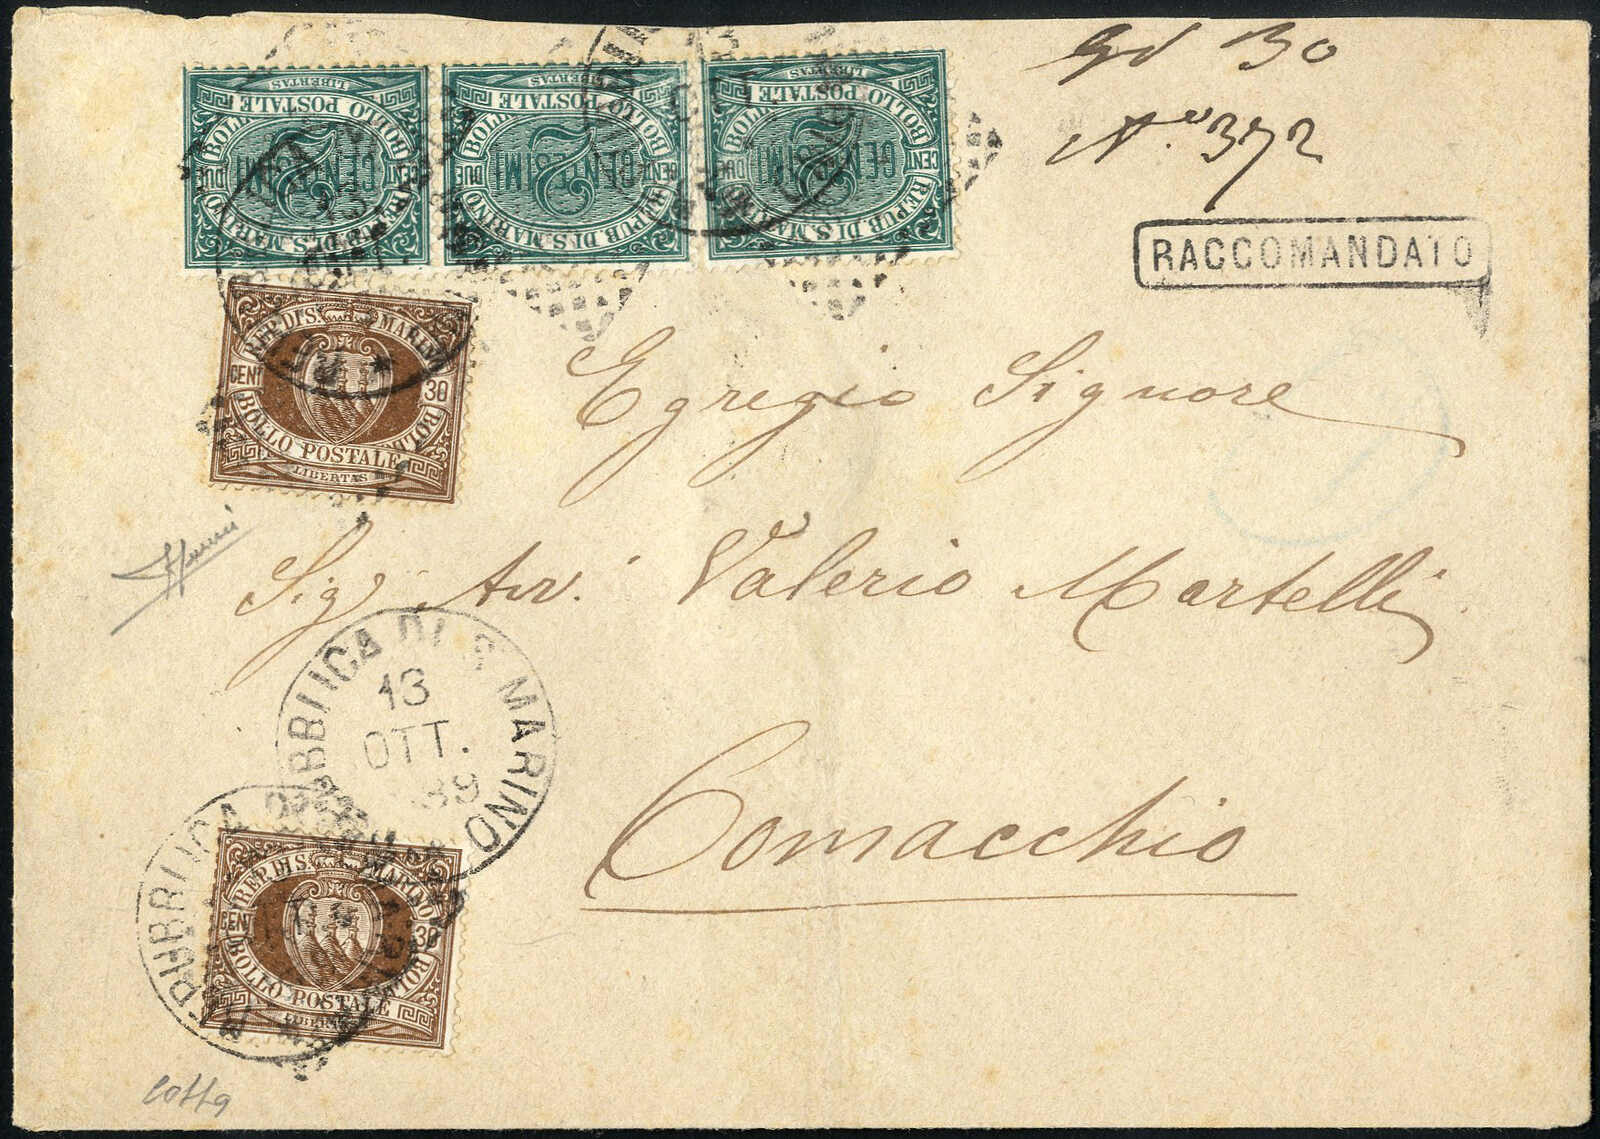 LIBERTAS
BOLLO POSTALE
CENT 2 DUE
CENTESIMI
REPUB. DI S. MARINO
LIBERTAS
BOLLO POSTALE
CENT 2 DUE
CENTESIMI
REPUB. DI S. MARINO
LIBERTAS
BOLLO POSTALE
CENT 2 DUE
CENTESIMI
REPUB. DI S. MARINO
30
No. 372
RACCOMANDATO
REP. DI S. MARINO
CENT 30
BOLLO POSTALE
LIBERTAS
Egregio Signore
Sig Avv. Valerio Martelli
Comacchio
REPUBBLICA DI S. MARINO
13
OTT.
89
REP. DI S. MARINO
CENT 30
BOLLO POSTALE
LIBERTAS